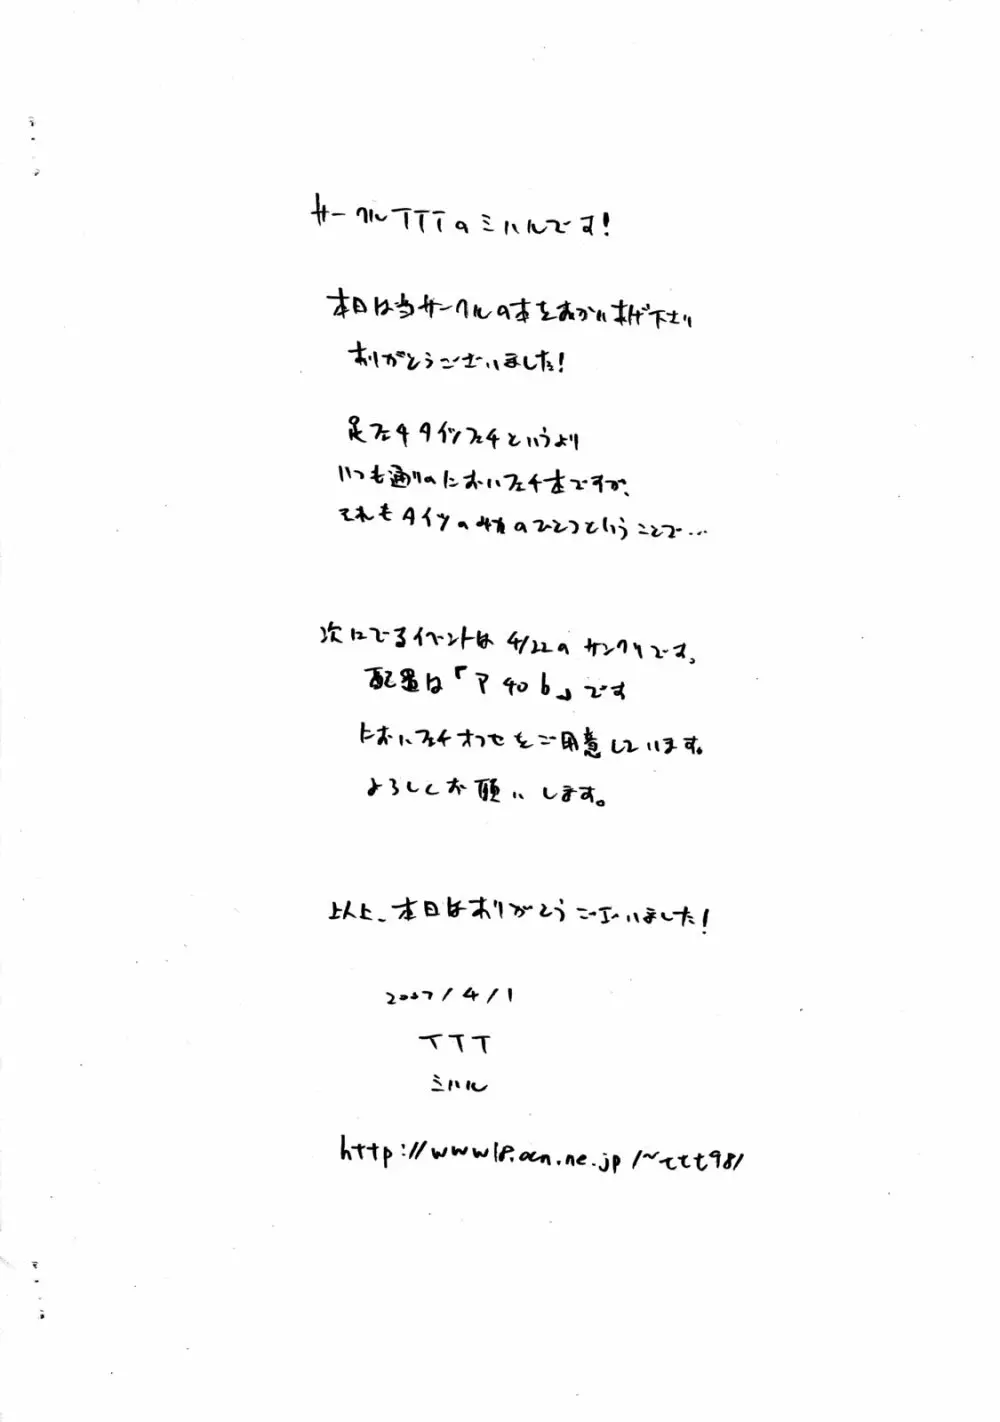 サークルTTTのミハルです!
本日は当サークルの本をおかい上げ下さり
ありがとうございました!
足フェチタイツフェチというより
いつも通りのにおいフェチ本ですが、
それもタイツの のひとつということで…
次にでるイベントは4/22のサンクリです。
配置は「ア40b」です
においフェチオフセをご用意しています。
よろしくお願いします。
以上、本日はありがとうございました!
2007/4/1
TTT
ミハル
http://www18.ocn.ne.jp/~ttt98/